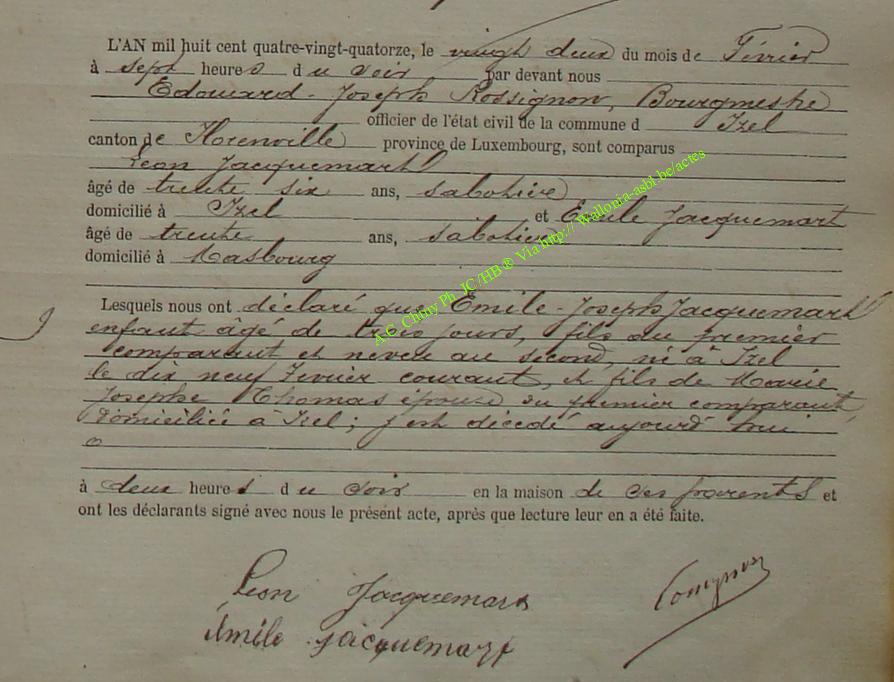 L'AN mil huit cent quatre-vingt-quatorze, le vingt deux du mois de Février
à sept heures du soir par devant nous
Edouard-Joseph Rossignon, Bourgmestre
officier de l'état civil de la commune d Izel
canton de Florenville province de Luxembourg, sont comparus
Léon Jacquemart
âgé de trente six ans, sabotier
domicilié à Izel et Emile Jacquemart
âgé de trente ans, sabotier
domicilié à Masbourg
A.G. Chiny Ph. JC /HB® Via http:// Wallonia-asbl.be/actes
Lesquels nous ont déclaré que Emile-Joseph Jacquemart
enfant âgé de trois jours, fils du premier
comparant et neveu au second, né à Izel
le dix neuf Février courant, et fils de Marie
Josephe Thomas épouse du premier comparant,
domiciliée à Izel ; y est décédé aujourd'hui
à deux heures du soir en la maison de ses parents et
ont les déclarants signé avec nous le présent acte, après que lecture leur en a été faite.
Léon Jacquemart
Émile Jacquemart